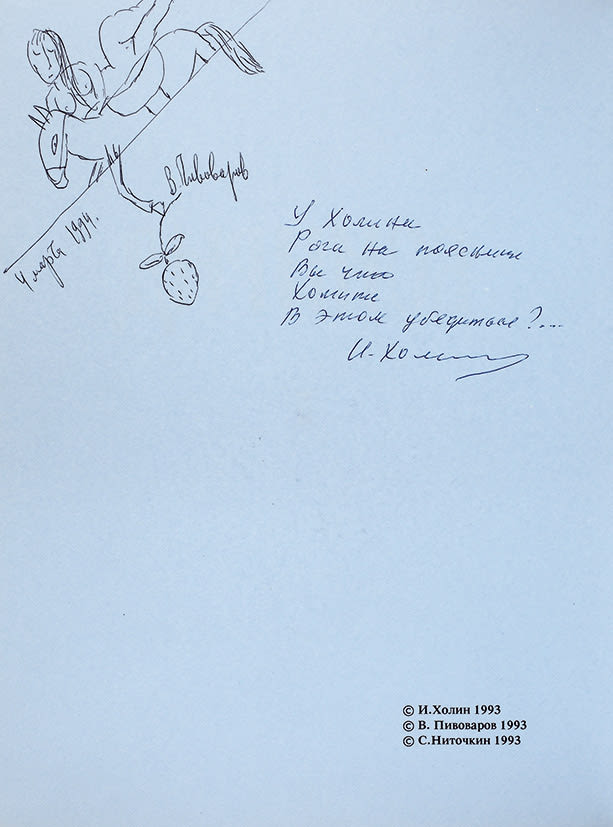 4 марта 1994.
В. Пивоваров
У Холина
Рога на пояснице
Вы что
Хотите
В этом убедиться?...
И. Холин
© И.Холин 1993
© В. Пивоваров 1993
© С.Ниточкин 1993